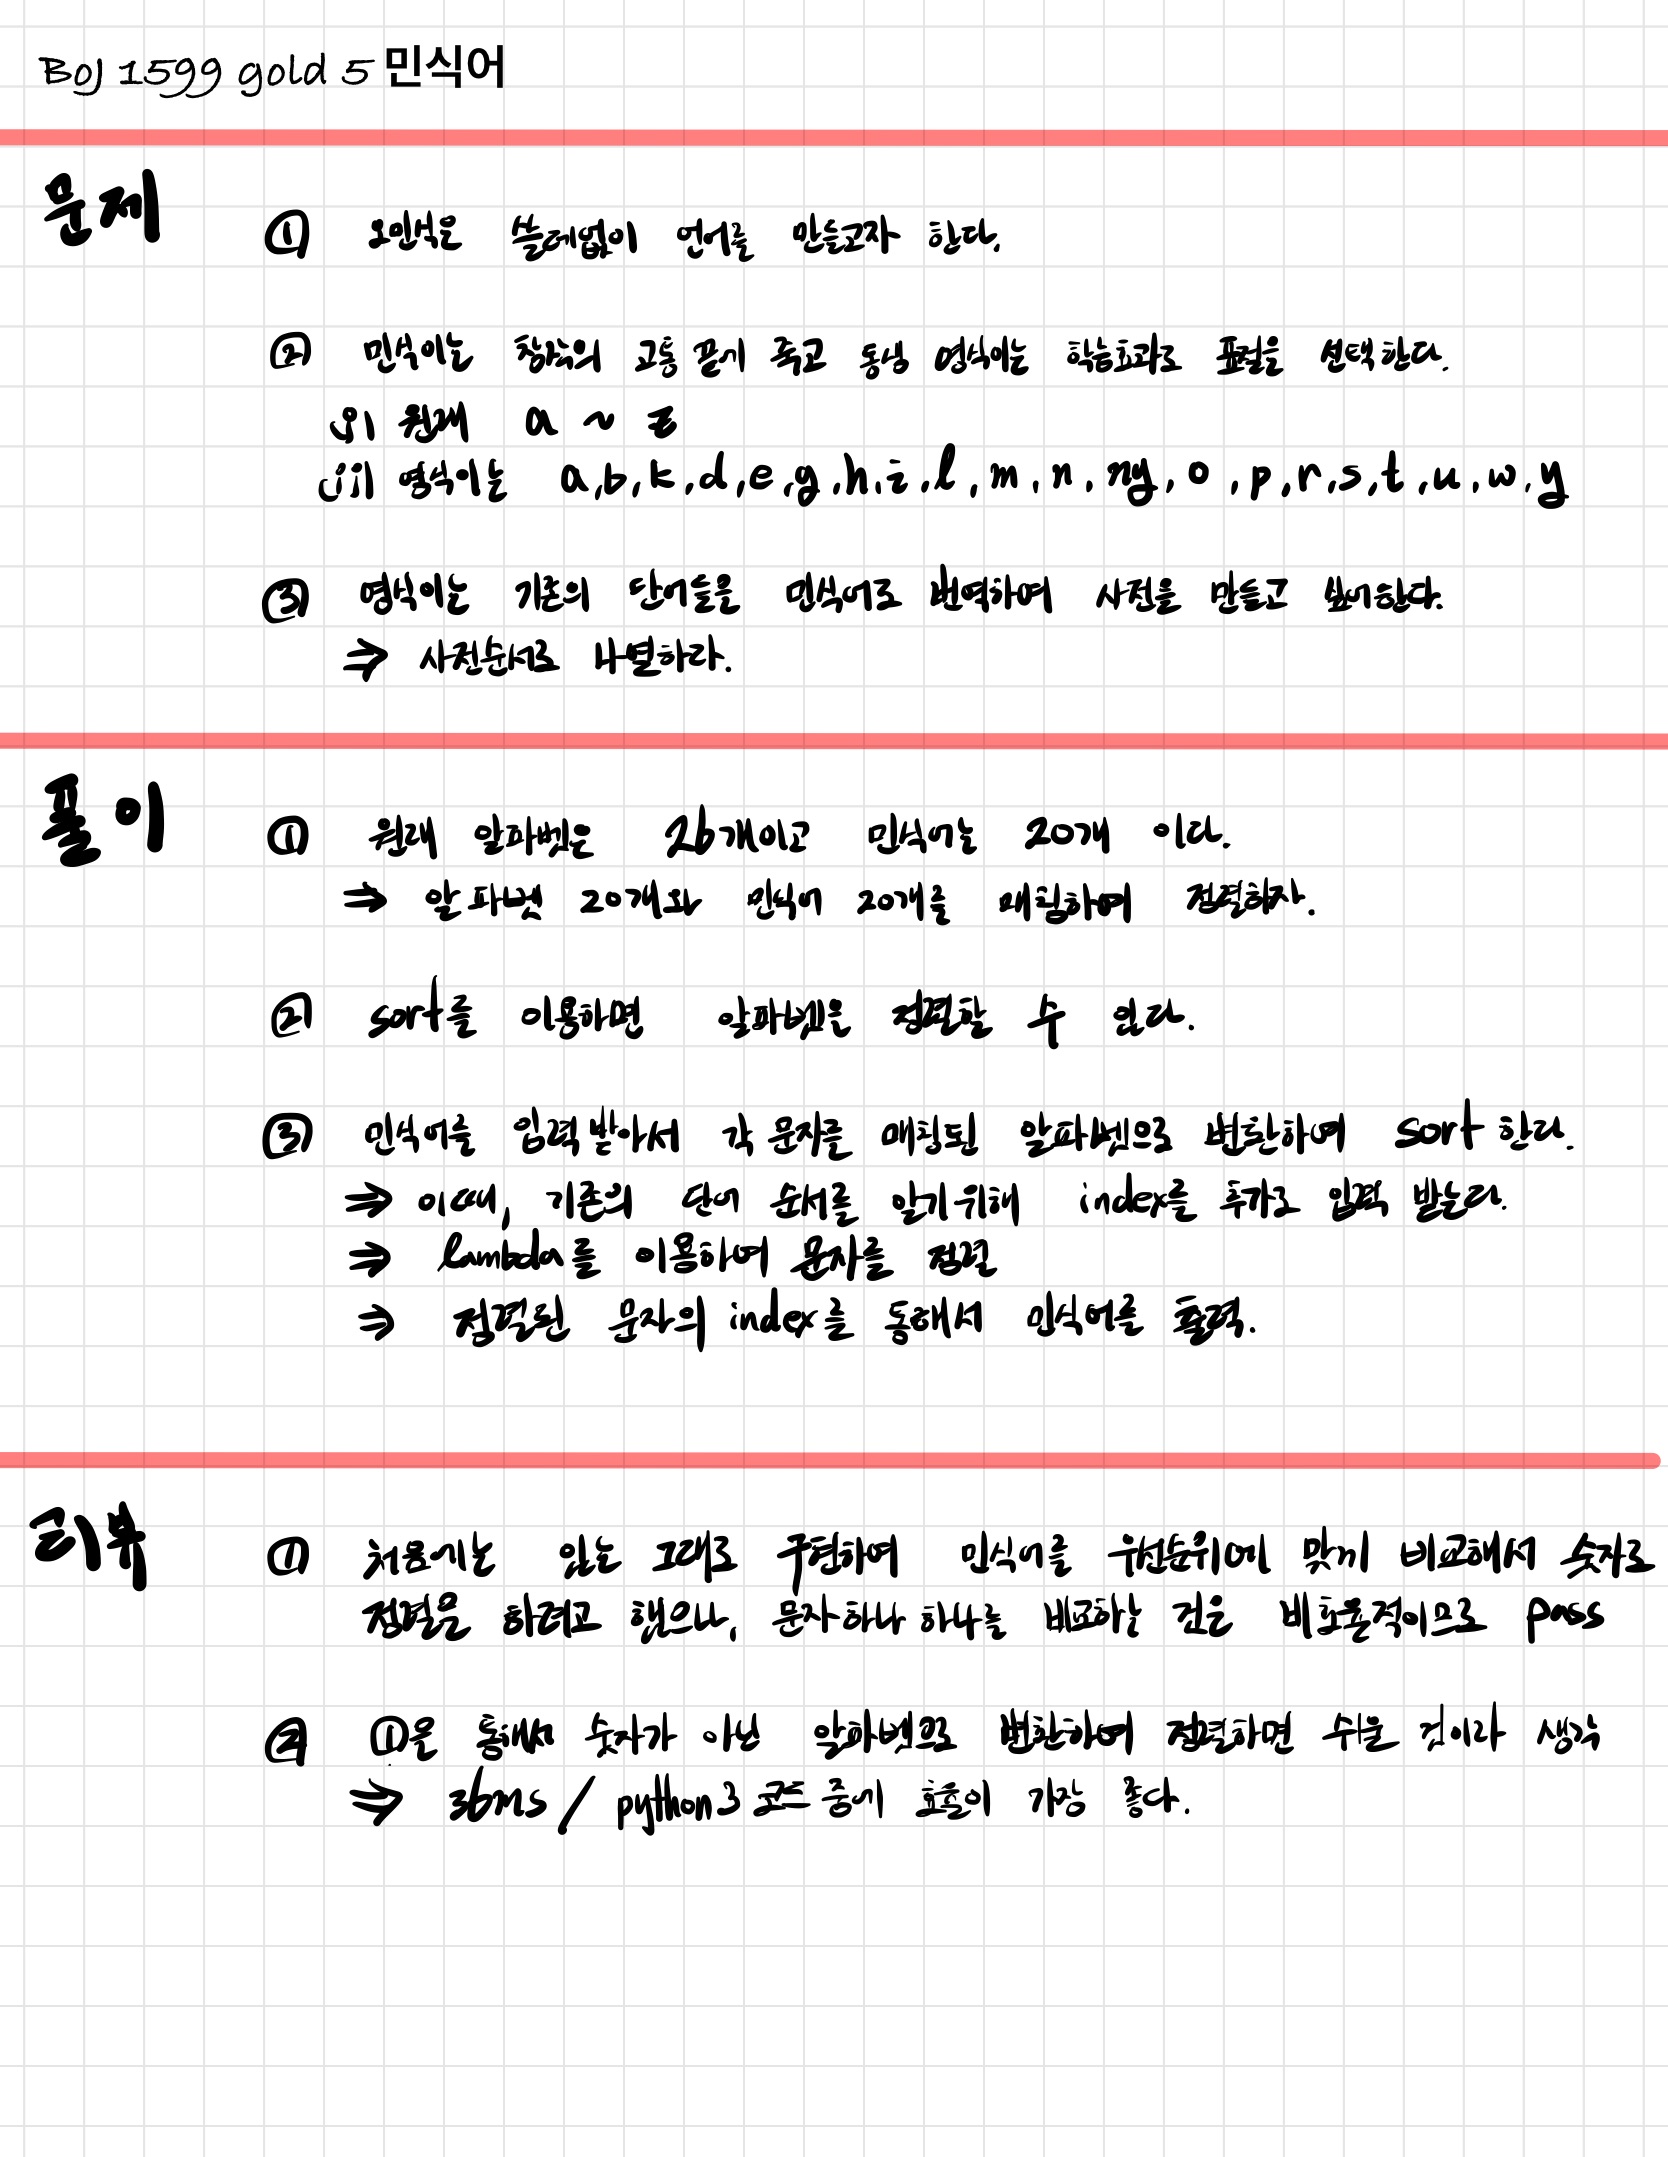 Boj 1599 gold 5 민식어
문제
① 오민식은 쓸데없이 언어를 만들고자 한다.
② 민식이는 창작의 고통 끝에 죽고 동생 영식이는 학습효과로 표절을 선택한다.
i) 원래 a ~ z
ii) 영식이는 a,b,k,d,e,g,h,i,l,m,n,ng,o,p,r,s,t,u,w,y
③ 영식이는 기존의 단어들을 민식어로 번역하여 사전을 만들고 싶어한다.
⇒ 사전순서로 나열하라.
풀이
① 원래 알파벳은 26개이고 민식어는 20개 이다.
⇒ 알파벳 20개와 민식어 20개를 매칭하여 정렬하자.
② sort를 이용하면 알파벳은 정렬할 수 있다.
③ 민식어를 입력받아서 각 문자를 매칭된 알파벳으로 변환하여 sort 한다.
⇒ 이때, 기존의 단어 순서를 알기위해 index를 추가로 입력 받는다.
⇒ lambda를 이용하여 문자를 정렬
⇒ 정렬된 문자의 index를 통해서 민식어를 출력.
리뷰
① 처음에는 있는 그대로 구현하여 민식어를 우선순위에 맞게 비교해서 숫자로
정렬을 하려고 했으나, 문자하나 하나를 비교하는 것은 비효율적이므로 pass
② ①을 통해서 숫자가 아닌 알파벳으로 변환하여 정렬하면 쉬울 것이라 생각
⇒ 36ms / python3 코드 중에 효율이 가장 좋다.